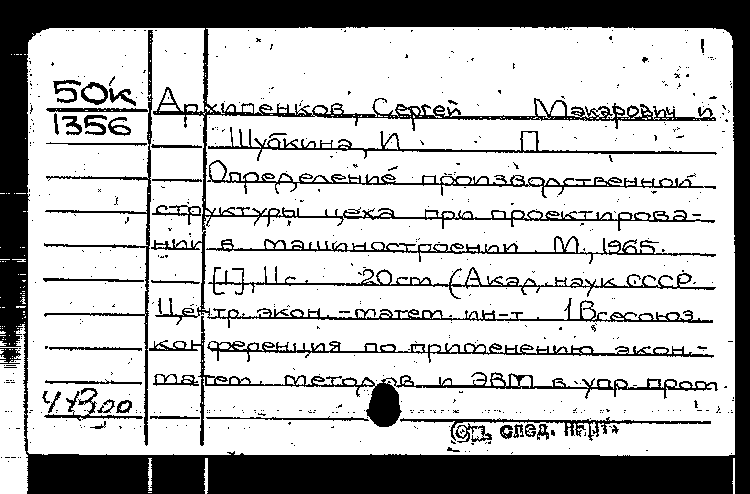 50к
1356
Архипенков, Сергей Макарович и
Шубкина, И. П.
Определение производственной
структуры цеха при проектирова-
нии в машиностроении. М., 1965.
[1], 11 с. 20 cm. (Акад. наук СССР.
Центр. экон.-матем. ин-т. 1 Всесоюз.
конференция по применению экон.-
матем. методов и ЭВМ в упр. пром.
см. след. карт.